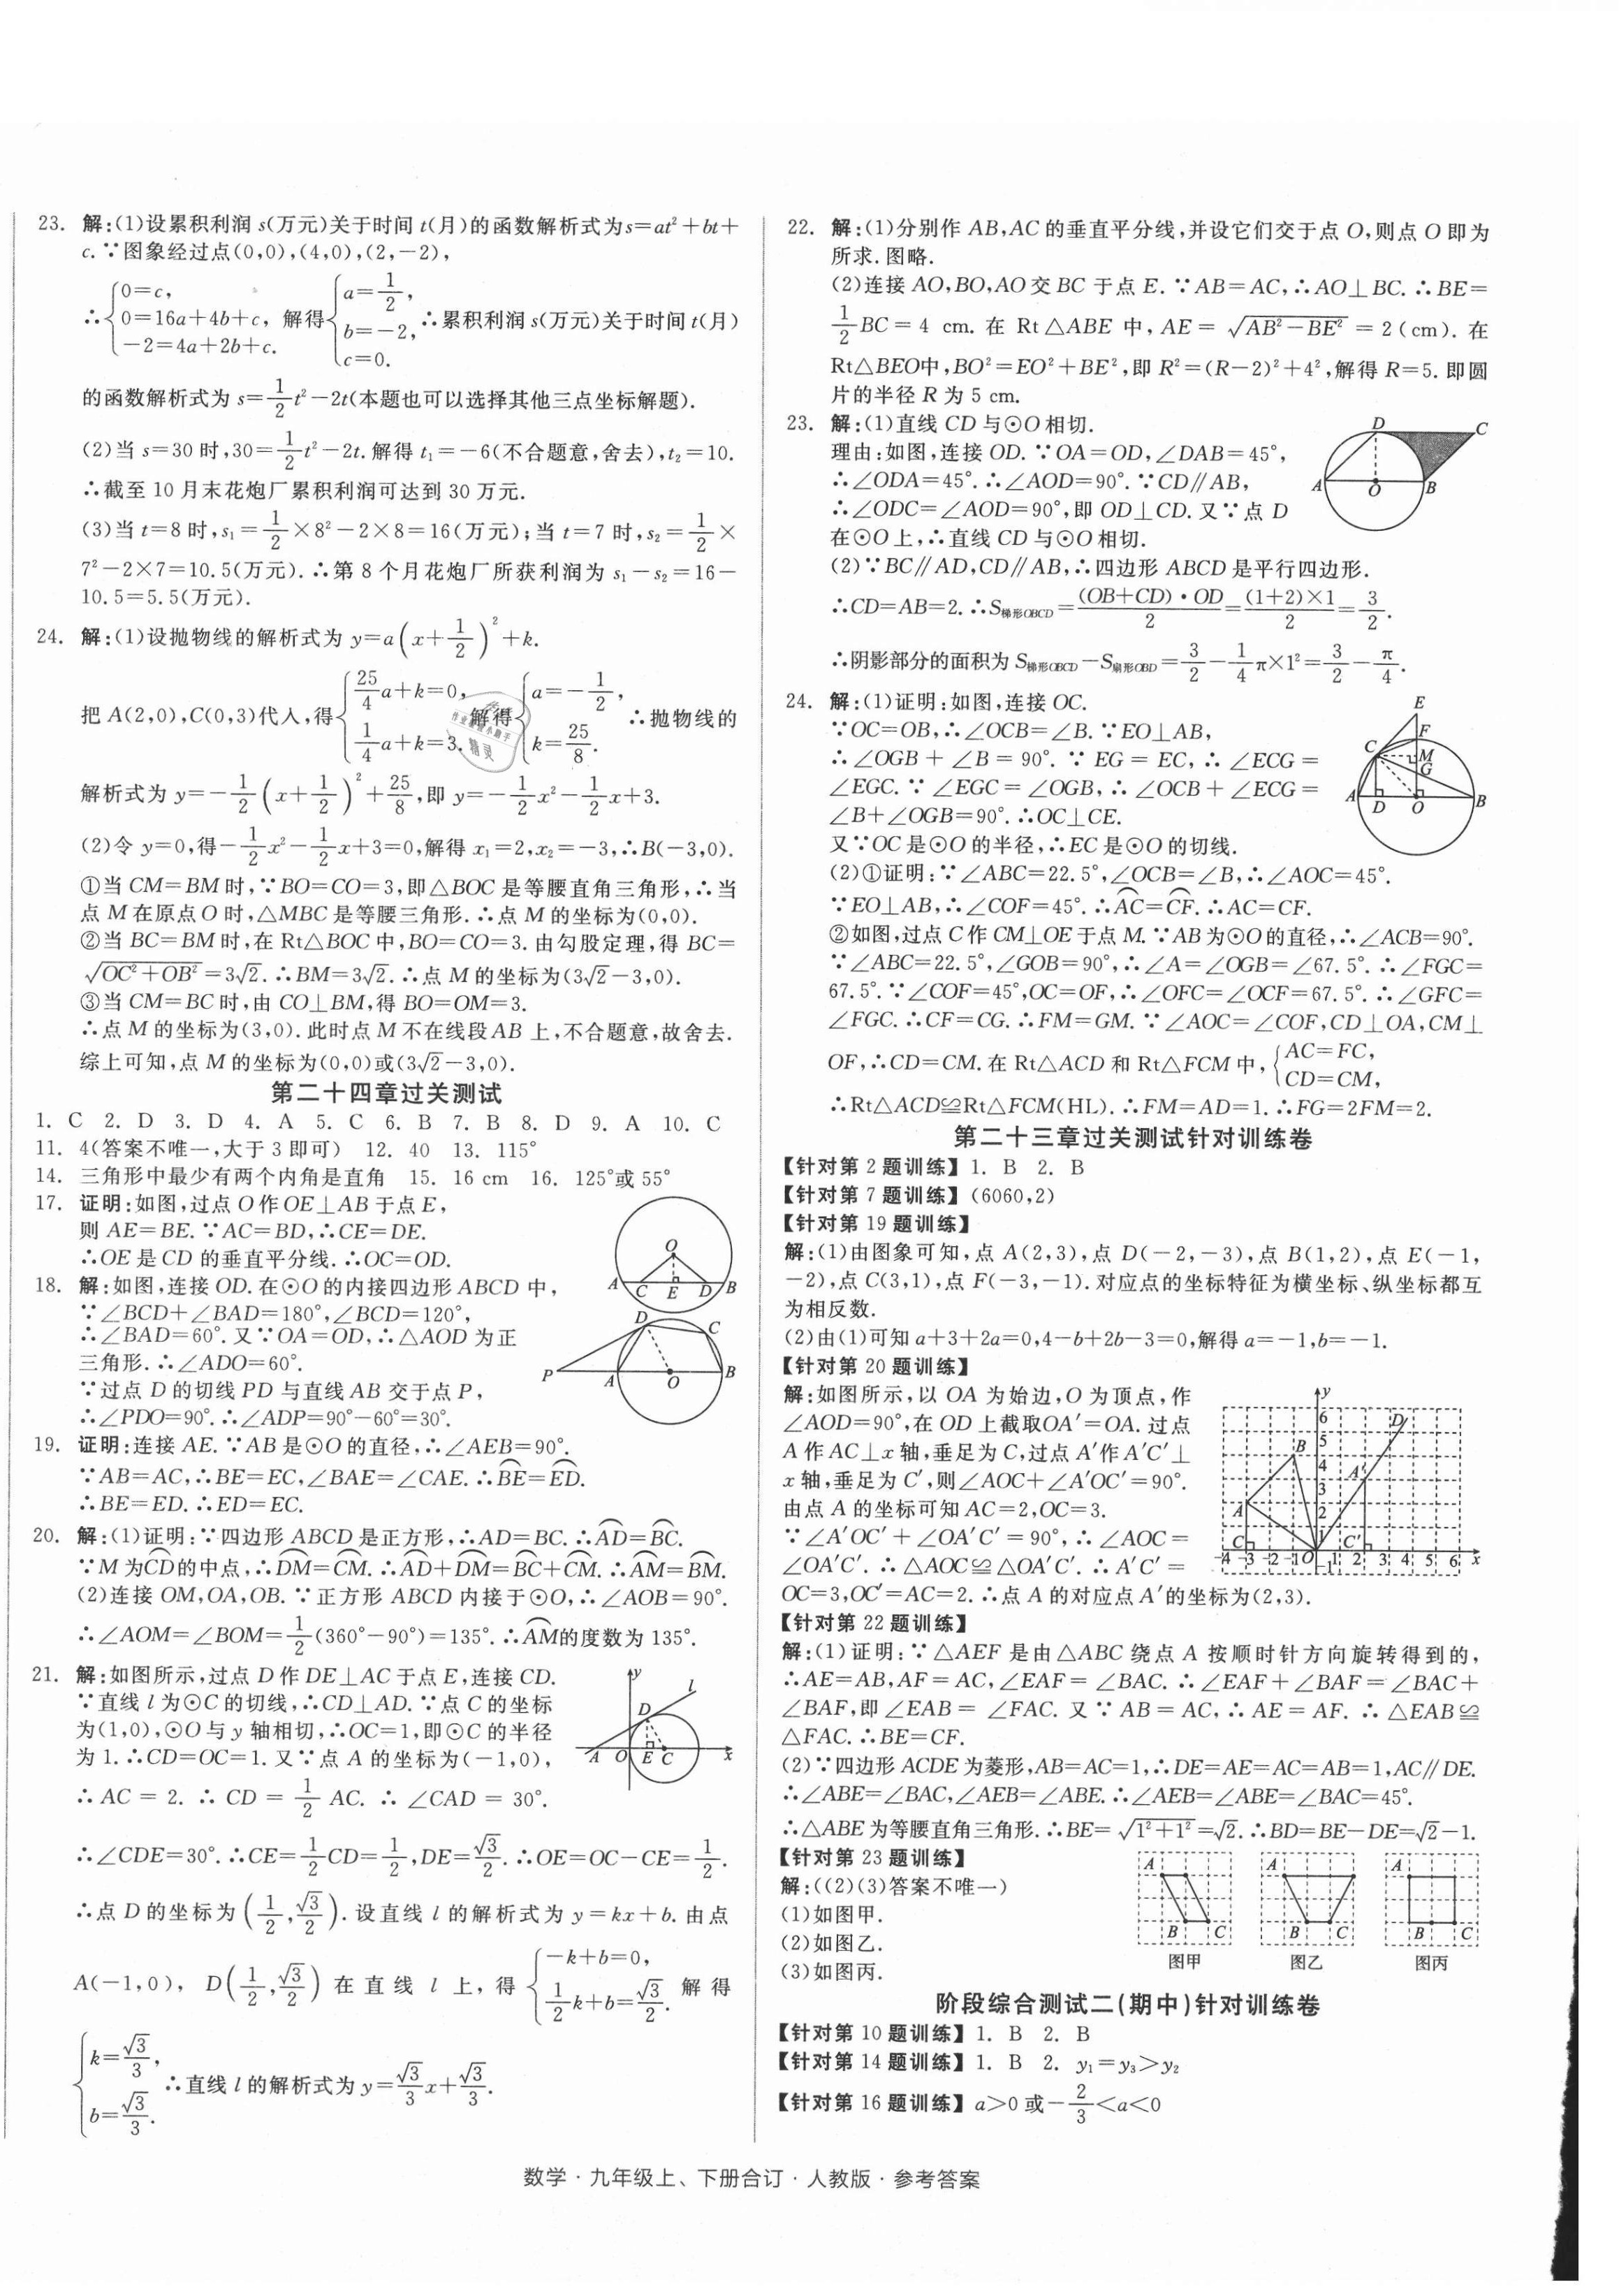 23. 解:(1)设累积利润 s(万元)关于时间 t(月)的函数解析式为s=at²+bt+
c. ∵图象经过点(0,0),(4,0),(2,-2),
∴{0=c, 0=16a+4b+c, -2=4a+2b+c. 解得{a=1/2, b=-2, c=0. ∴累积利润 s(万元)关于时间 t(月)
的函数解析式为 s=1/2t²-2t(本题也可以选择其他三点坐标解题).
(2)当 s=30 时,30=1/2t²-2t. 解得 t₁=-6(不合题意,舍去),t₂=10.
∴截至 10 月末花炮厂累积利润可达到 30 万元.
(3)当 t=8 时,s₁=1/2×8²-2×8=16(万元);当 t=7 时,s₂=1/2×
7²-2×7=10.5(万元). ∴第 8 个月花炮厂所获利润为 s₁-s₂=16-
10.5=5.5(万元).
24. 解:(1)设抛物线的解析式为 y=a(x+1/2)²+k.
把 A(2,0),C(0,3)代入,得{25/4a+k=0, 1/4a+k=3. 解得{a=-1/2, k=25/8. ∴抛物线的
解析式为 y=-1/2(x+1/2)²+25/8,即 y=-1/2x²-1/2x+3.
(2)令 y=0,得-1/2x²-1/2x+3=0,解得 x₁=2,x₂=-3,∴B(-3,0).
①当 CM=BM 时,∵BO=CO=3,即△BOC 是等腰直角三角形,∴当
点 M 在原点 O 时,△MBC 是等腰三角形. ∴点 M 的坐标为(0,0).
②当 BC=BM 时,在 Rt△BOC 中,BO=CO=3. 由勾股定理,得 BC=
√(OC²+OB²)=3√2. ∴BM=3√2. ∴点 M 的坐标为(3√2-3,0).
③当 CM=BC 时,由 CO⊥BM,得 BO=OM=3.
∴点 M 的坐标为(3,0). 此时点 M 不在线段 AB 上,不合题意,故舍去.
综上可知,点 M 的坐标为(0,0)或(3√2-3,0).
第二十四章过关测试
1. C 2. D 3. D 4. A 5. C 6. B 7. B 8. D 9. A 10. C
11. 4(答案不唯一,大于 3 即可) 12. 40 13. 115°
14. 三角形中最少有两个内角是直角 15. 16 cm 16. 125°或 55°
17. 证明:如图,过点 O 作 OE⊥AB 于点 E,
则 AE=BE. ∵AC=BD,∴CE=DE.
∴OE 是 CD 的垂直平分线. ∴OC=OD.
O
A C E D B
18. 解:如图,连接 OD. 在⊙O 的内接四边形 ABCD 中,
∵∠BCD+∠BAD=180°,∠BCD=120°,
∴∠BAD=60°. 又∵OA=OD,∴△AOD 为正
三角形. ∴∠ADO=60°.
∵过点 D 的切线 PD 与直线 AB 交于点 P,
∴∠PDO=90°. ∴∠ADP=90°-60°=30°.
D C
P A O B
19. 证明:连接 AE. ∵AB 是⊙O 的直径,∴∠AEB=90°.
∵AB=AC,∴BE=EC,∠BAE=∠CAE. ∴B͡E=E͡D.
∴BE=ED. ∴ED=EC.
20. 解:(1)证明:∵四边形 ABCD 是正方形,∴AD=BC. ∴A͡D=B͡C.
∵M 为C͡D的中点,∴D͡M=C͡M. ∴A͡D+D͡M=B͡C+C͡M. ∴A͡M=B͡M.
(2)连接 OM,OA,OB. ∵正方形 ABCD 内接于⊙O,∴∠AOB=90°.
∴∠AOM=∠BOM=1/2(360°-90°)=135°. ∴A͡M的度数为 135°.
21. 解:如图所示,过点 D 作 DE⊥AC 于点 E,连接 CD.
∵直线 l 为⊙C 的切线,∴CD⊥AD. ∵点 C 的坐标
为(1,0),⊙O 与 y 轴相切,∴OC=1,即⊙C 的半径
为 1. ∴CD=OC=1. 又∵点 A 的坐标为(-1,0),
∴AC=2. ∴CD=1/2 AC. ∴∠CAD=30°.
y l
D
A O E C x
∴∠CDE=30°. ∴CE=1/2CD=1/2,DE=√3/2. ∴OE=OC-CE=1/2.
∴点 D 的坐标为(1/2,√3/2). 设直线 l 的解析式为 y=kx+b. 由点
A(-1,0), D(1/2,√3/2)在直线 l 上,得{-k+b=0, 1/2k+b=√3/2. 解得
{k=√3/3, b=√3/3. ∴直线 l 的解析式为 y=√3/3x+√3/3.
22. 解:(1)分别作 AB,AC 的垂直平分线,并设它们交于点 O,则点 O 即为
所求. 图略.
(2)连接 AO,BO,AO 交 BC 于点 E. ∵AB=AC,∴AO⊥BC. ∴BE=
1/2BC=4 cm. 在 Rt△ABE 中,AE=√(AB²-BE²)=2(cm). 在
Rt△BEO中,BO²=EO²+BE²,即 R²=(R-2)²+4²,解得 R=5. 即圆
片的半径 R 为 5 cm.
23. 解:(1)直线 CD 与⊙O 相切.
理由:如图,连接 OD. ∵OA=OD,∠DAB=45°,
∴∠ODA=45°. ∴∠AOD=90°. ∵CD∥AB,
∴∠ODC=∠AOD=90°,即 OD⊥CD. 又∵点 D
在⊙O 上,∴直线 CD 与⊙O 相切.
D C
A O B
(2)∵BC∥AD,CD∥AB,∴四边形 ABCD 是平行四边形.
∴CD=AB=2. ∴S梯形OBCD=(OB+CD)·OD/2=(1+2)×1/2=3/2.
∴阴影部分的面积为 S梯形OBCD-S扇形OBD=3/2-1/4π×1²=3/2-π/4.
24. 解:(1)证明:如图,连接 OC.
∵OC=OB,∴∠OCB=∠B. ∵EO⊥AB,
∴∠OGB+∠B=90°. ∵EG=EC,∴∠ECG=
∠EGC. ∵∠EGC=∠OGB,∴∠OCB+∠ECG=
∠B+∠OGB=90°. ∴OC⊥CE.
又∵OC 是⊙O 的半径,∴EC 是⊙O 的切线.
E
F
C M
G
A D O B
(2)①证明:∵∠ABC=22.5°,∠OCB=∠B,∴∠AOC=45°.
∵EO⊥AB,∴∠COF=45°. ∴A͡C=C͡F. ∴AC=CF.
②如图,过点 C 作 CM⊥OE 于点 M. ∵AB 为⊙O 的直径,∴∠ACB=90°.
∵∠ABC=22.5°,∠GOB=90°,∴∠A=∠OGB=∠67.5°. ∴∠FGC=
67.5°. ∵∠COF=45°,OC=OF,∴∠OFC=∠OCF=67.5°. ∴∠GFC=
∠FGC. ∴CF=CG. ∴FM=GM. ∵∠AOC=∠COF,CD⊥OA,CM⊥
OF,∴CD=CM. 在 Rt△ACD 和 Rt△FCM 中,{AC=FC, CD=CM,
∴Rt△ACD≌Rt△FCM(HL). ∴FM=AD=1. ∴FG=2FM=2.
第二十三章过关测试针对训练卷
【针对第 2 题训练】 1. B 2. B
【针对第 7 题训练】 (6060,2)
【针对第 19 题训练】
解:(1)由图象可知,点 A(2,3),点 D(-2,-3),点 B(1,2),点 E(-1,
-2),点 C(3,1),点 F(-3,-1). 对应点的坐标特征为横坐标、纵坐标都互
为相反数.
(2)由(1)可知 a+3+2a=0,4-b+2b-3=0,解得 a=-1,b=-1.
【针对第 20 题训练】
解:如图所示,以 OA 为始边,O 为顶点,作
∠AOD=90°,在 OD 上截取OA′=OA. 过点
A 作 AC⊥x 轴,垂足为 C,过点 A′作 A′C′⊥
x 轴,垂足为 C′,则∠AOC+∠A′OC′=90°.
由点 A 的坐标可知 AC=2,OC=3.
∵∠A′OC′+∠OA′C′=90°,∴∠AOC=
∠OA′C′. ∴△AOC≌△OA′C′. ∴A′C′=
OC=3,OC′=AC=2. ∴点 A 的对应点 A′的坐标为(2,3).
y
6 D
B 5
4 A′
3
A 2
C 1 C′
-4 -3 -2 -1 O 1 2 3 4 5 6 x
-1
【针对第 22 题训练】
解:(1)证明:∵△AEF 是由△ABC 绕点 A 按顺时针方向旋转得到的,
∴AE=AB,AF=AC,∠EAF=∠BAC. ∴∠EAF+∠BAF=∠BAC+
∠BAF,即∠EAB=∠FAC. 又∵AB=AC,∴AE=AF. ∴△EAB≌
△FAC. ∴BE=CF.
(2)∵四边形 ACDE 为菱形,AB=AC=1,∴DE=AE=AC=AB=1,AC∥DE.
∴∠ABE=∠BAC,∠AEB=∠ABE. ∴∠AEB=∠ABE=∠BAC=45°.
∴△ABE 为等腰直角三角形. ∴BE=√(1²+1²)=√2. ∴BD=BE-DE=√2-1.
【针对第 23 题训练】
解:((2)(3)答案不唯一)
(1)如图甲.
(2)如图乙.
(3)如图丙.
A A A
B C B C B C
图甲 图乙 图丙
阶段综合测试二(期中)针对训练卷
【针对第 10 题训练】 1. B 2. B
【针对第 14 题训练】 1. B 2. y₁=y₃>y₂
【针对第 16 题训练】 a>0 或-2/3<a<0
数学·九年级上、下册合订·人教版·参考答案